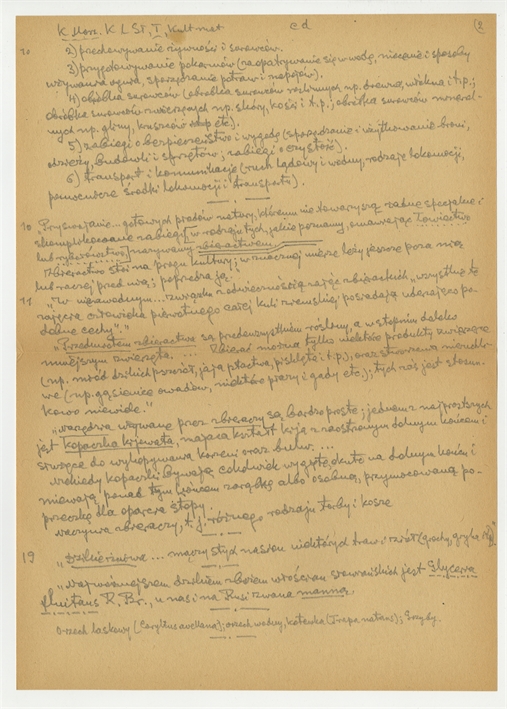 K. Mosz. K L St, I, Kult mat c d (2
20 2) przechowywanie żywności i surowców.
3) przygotowywanie pokarmów (zaopatrywanie się w wodę, niecenie i sposoby
używania ognia, sporządzanie potraw i napojów).
4) obróbka surowców (obróbka surowców roślinnych np. drewna, włókna i t.p.;
obróbka surowców zwierzęcych np. skóry, kości i t.p.; obróbka surowców mineral-
nych np. gliny, kruszców etc.).
5) zabiegi o bezpieczeństwo i wygodę (sporządzanie i użytkowanie broni,
odzieży, budowli i sprzętów; zabiegi o czystość).
6) transport i komunikacja (ruch lądowy i wodny, rodzaje lokomocji,
pomocnicze środki lokomocji i transportu).
"Przyswajanie... gotowych płodów natury, któremu nie towarzyszą żadne specjalne i
skomplikowane zabiegi [w rodzaju tych, jakie poznamy omawiając łowiectwo
lub rybołówstwo] nazywamy zbieractwem.
Zbieractwo stoi na progu kultury; w znacznej mierze leży jeszcze poza nią
lub raczej przed nią; poprzedza ją."
11 "W niezawodnym... związku z odwiecznością zajęć zbierackich "wszystkie te
zajęcia człowieka pierwotnego całej kuli ziemskiej posiadają uderzająco po-
dobne cechy"."
"Przedmiotem zbieractwa są przedewszystkiem rośliny, a w stopniu daleko
mniejszym zwierzęta. ... Zbierać można tylko niektóre produkty zwierzęce
(np. miód dzikich pszczół, jaja ptactwa, pisklęta i t.p.), oraz stworzenia nieruchli-
we (np. gąsienice owadów, niektóre gady etc.); tych zaś jest stosun-
kowo niewiele."
"Narzędzia używane przez zbieraczy są bardzo proste; jednem z najprostszych
jest kopaczka kijowata, mająca kształt kija z zaostrzonym dolnym końcem i
służąca do wykopywania korzeni oraz bulw. ...
niekiedy kopaczki bywają cokolwiek wygięte, okute na dolnym końcu i
miewają ponad tym końcem zarąbkę albo osobną, przymocowaną po-
przeczkę dla oparcia stopy.
naczynia zbieraczy, t.j. różnego rodzaju torby i kosze
19 ... mączystych nasion niektórych traw i
"Najważniejszem dzikiem zbożem włościan słowiańskich jest Glyceria
fluitans R. Br., u nas i na Rusi zwana manną.
Orzech laskowy (Corylus avellana); orzech wodny, kotewka (Trapa natans); Grzyby.